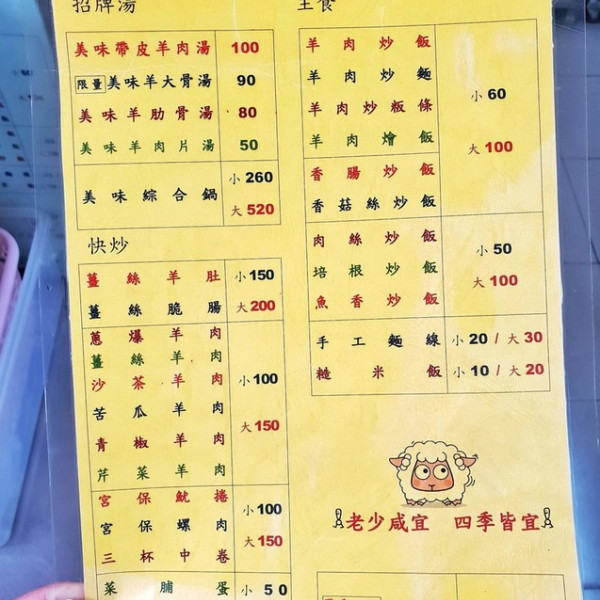 招牌湯
美味帶皮羊肉湯 100
限量 美味羊大骨湯 90
美味羊肋骨湯 80
美味羊肉片湯 50
美味綜合鍋 小260 大520
快炒
薑絲羊肚 小150
薑絲脆腸 大200
蔥爆羊肉
薑絲羊肉
沙茶羊肉 小100
苦瓜羊肉
青椒羊肉 大150
芹菜羊肉
宮保魷捲 小100
宮保螺肉
三杯中卷 大150
菜脯蛋 小50
主食
羊肉炒飯
羊肉炒麵
羊肉炒粄條 小60
羊肉燴飯
香腸炒飯 大100
香菇絲炒飯
肉絲炒飯 小50
培根炒飯
魚香炒飯 大100
手工麵線 小20 / 大30
糙米飯 小10 / 大20
老少咸宜 四季皆宜